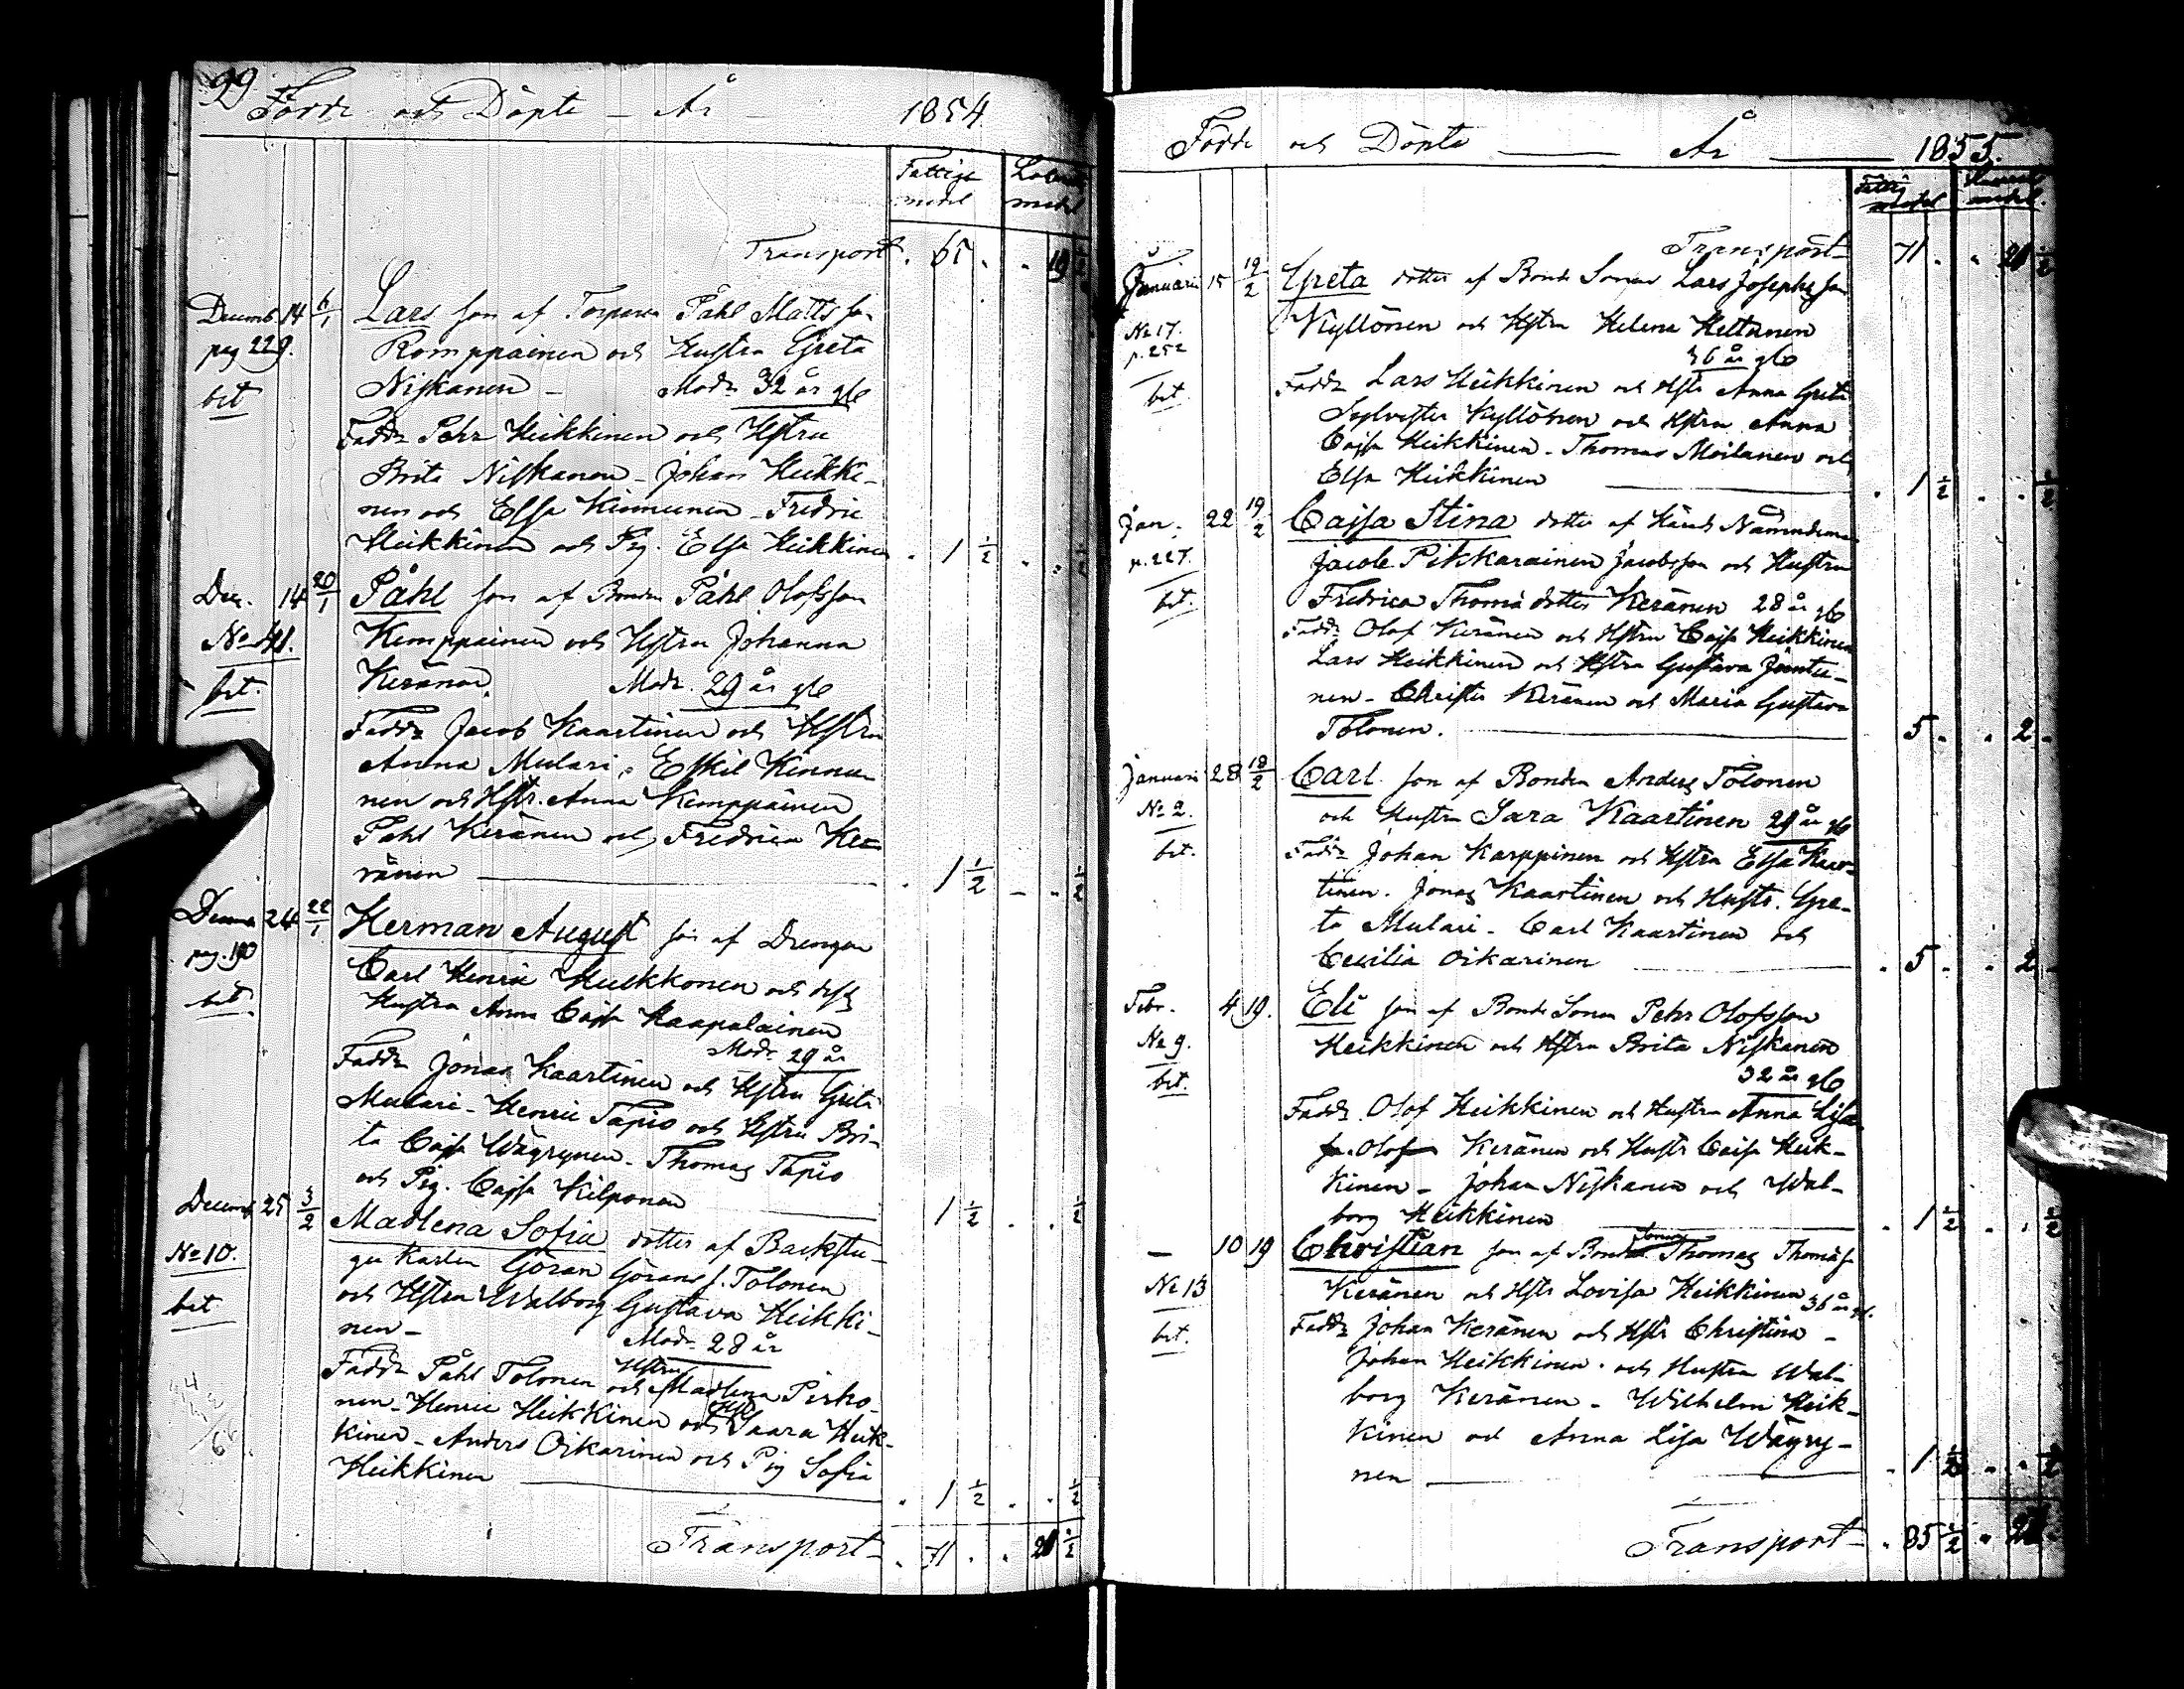 99
Födde och Döpte - År - 1854
Fattige medel
Transport . 65 . . 19 1/2
Decemb 14 6/1 Lars son af Torparen Påhl Matts son
pag 229. Komppainen och Hustru Greta
bet Niskanen - Modr 32 år gl
Faddr Pehr Heikkinen och Hstru
Brita Niskanen - Johan Heikki-
nen och Elsa Kinnunen - Fredric
Heikkinen och Pig. Elsa Heikkinen . 1 1/2 . . 1/2
Dec. 14 20/1 Påhl son af Bonden Påhl Olofsson
No 41. Kemppainen och Hstru Johanna
bet. Keränen. Modr. 29 år gl
Faddr Jacob Kaartinen och Hstru
Anna Mulari, Eskil Kinnu-
nen och Hstr. Anna Kemppainen
Påhl Keränen och Fredrica Ke-
ränen . 1 1/2 - . 1/2
Decemb 24 22/1 Herman August son af Drengen
pag. 190 Carl Henric Hulkkonen och dess
bet Hustru Anna Cajsa Haapalainen
Modr 29 år
Faddr Jonas Kaartinen och Hstru Greta
Mulari - Henric Tapio och Hstru Bri-
ta Cajsa Wäyrynen - Thomas Tapio
och Pig. Cajsa Kilponen 1 1/2 . . 1/2
Decemb 25 3/2 Madlena Sofia dotter af Backstu-
No 10. gu Karlen Göran Görans s. Tolonen
bet och Hstru Walborg Gustava Heikki-
nen - Modr 28 år
Faddr Påhl Tolonen och Hstru Madlena Pirho-
nen - Henric Heikkinen och Hstr Saara Heik-
kinen - Anders Oikarinen och Pig Sofia
Heikkinen . 1 1/2 . . 1/2
Transport - . 71 . . 21 1/2
Födde och Döpte - År - 1855.
Fattig medel
Transport - 71 . . 21 1/2
Januari 15 19/2 Greta dotter af Bonde Sonen Lars Josephs son
No 17. Kyllönen och Hstru Helena Heltunen
p. 252 36 år gl
bet. Faddr Lars Heikkinen och Hstr Anna Greta
Sylvester Kyllönen och Hstru Anna
Cajsa Heikkinen - Thomas Moilanen och
Elsa Heikkinen . 1 1/2 . . 1/2
Jan. 22 19/2 Cajsa Stina dotter af Härads Nämndeman
p. 227. Jacob Pikkarainen Jacobsson och Hustru
bet. Fredrica Thomä dotter Keränen 28 år gl
Faddr Olof Keränen och Hstru Cajsa Heikkinen
Lars Heikkinen och Hstru Gustava Juntu-
nen - Christer Keränen och Maria Gustava
Tolonen. 5 . . 2 .
Januari 28 18/2 Carl son af Bonden Anders Tolonen
No 2. och Hustru Sara Kaartinen 29 år gl
bet. Faddr Johan Karppinen och Hstru Elsa Kaar-
tinen. Jonas Kaartinen och Hustr. Gre-
ta Mulari - Carl Kaartinen och
Cecilia Oikarinen . 5 . . 2 .
Febr. 4 19. Eli son af Bonde Sonen Pehr Olofsson
No 9. Heikkinen och Hstru Brita Niskanen
bet. 32 år gl
Faddr Olof Heikkinen och Hustru Anna Lisa
Olof Keränen och Hustr Caisa Heik-
kinen - Johan Niskanen och Wal-
borg Heikkinen . 1 1/2 . . 1/2
- 10 19 Christian son af Bonde Sonen Thomas Thomäs.
No 13 Keränen och Hstr Lovisa Heikkinen 36 år gl.
bet. Faddr Johan Keränen och Hstr Christina -
Johan Heikkinen. och Hustru Wal-
borg Keränen - Wilhelm Heik-
kinen och Anna Lisa Wäyry-
nen - . 1 1/2 . . 1/2
Transport - . 85 1/2